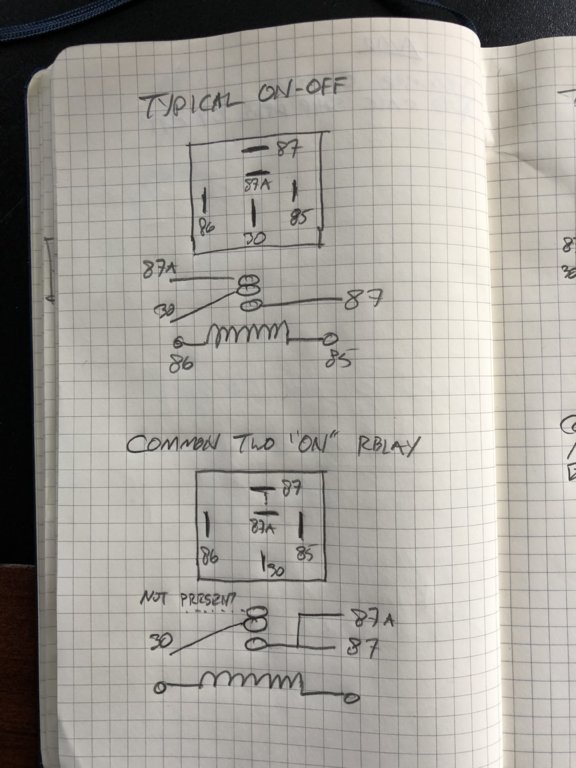 TYPICAL ON-OFF
87
87A
86
30
85
87A
30
87
86
85
COMMON TWO "ON" RELAY
87
87A
86
85
30
NOT PRESENT
87A
30
87